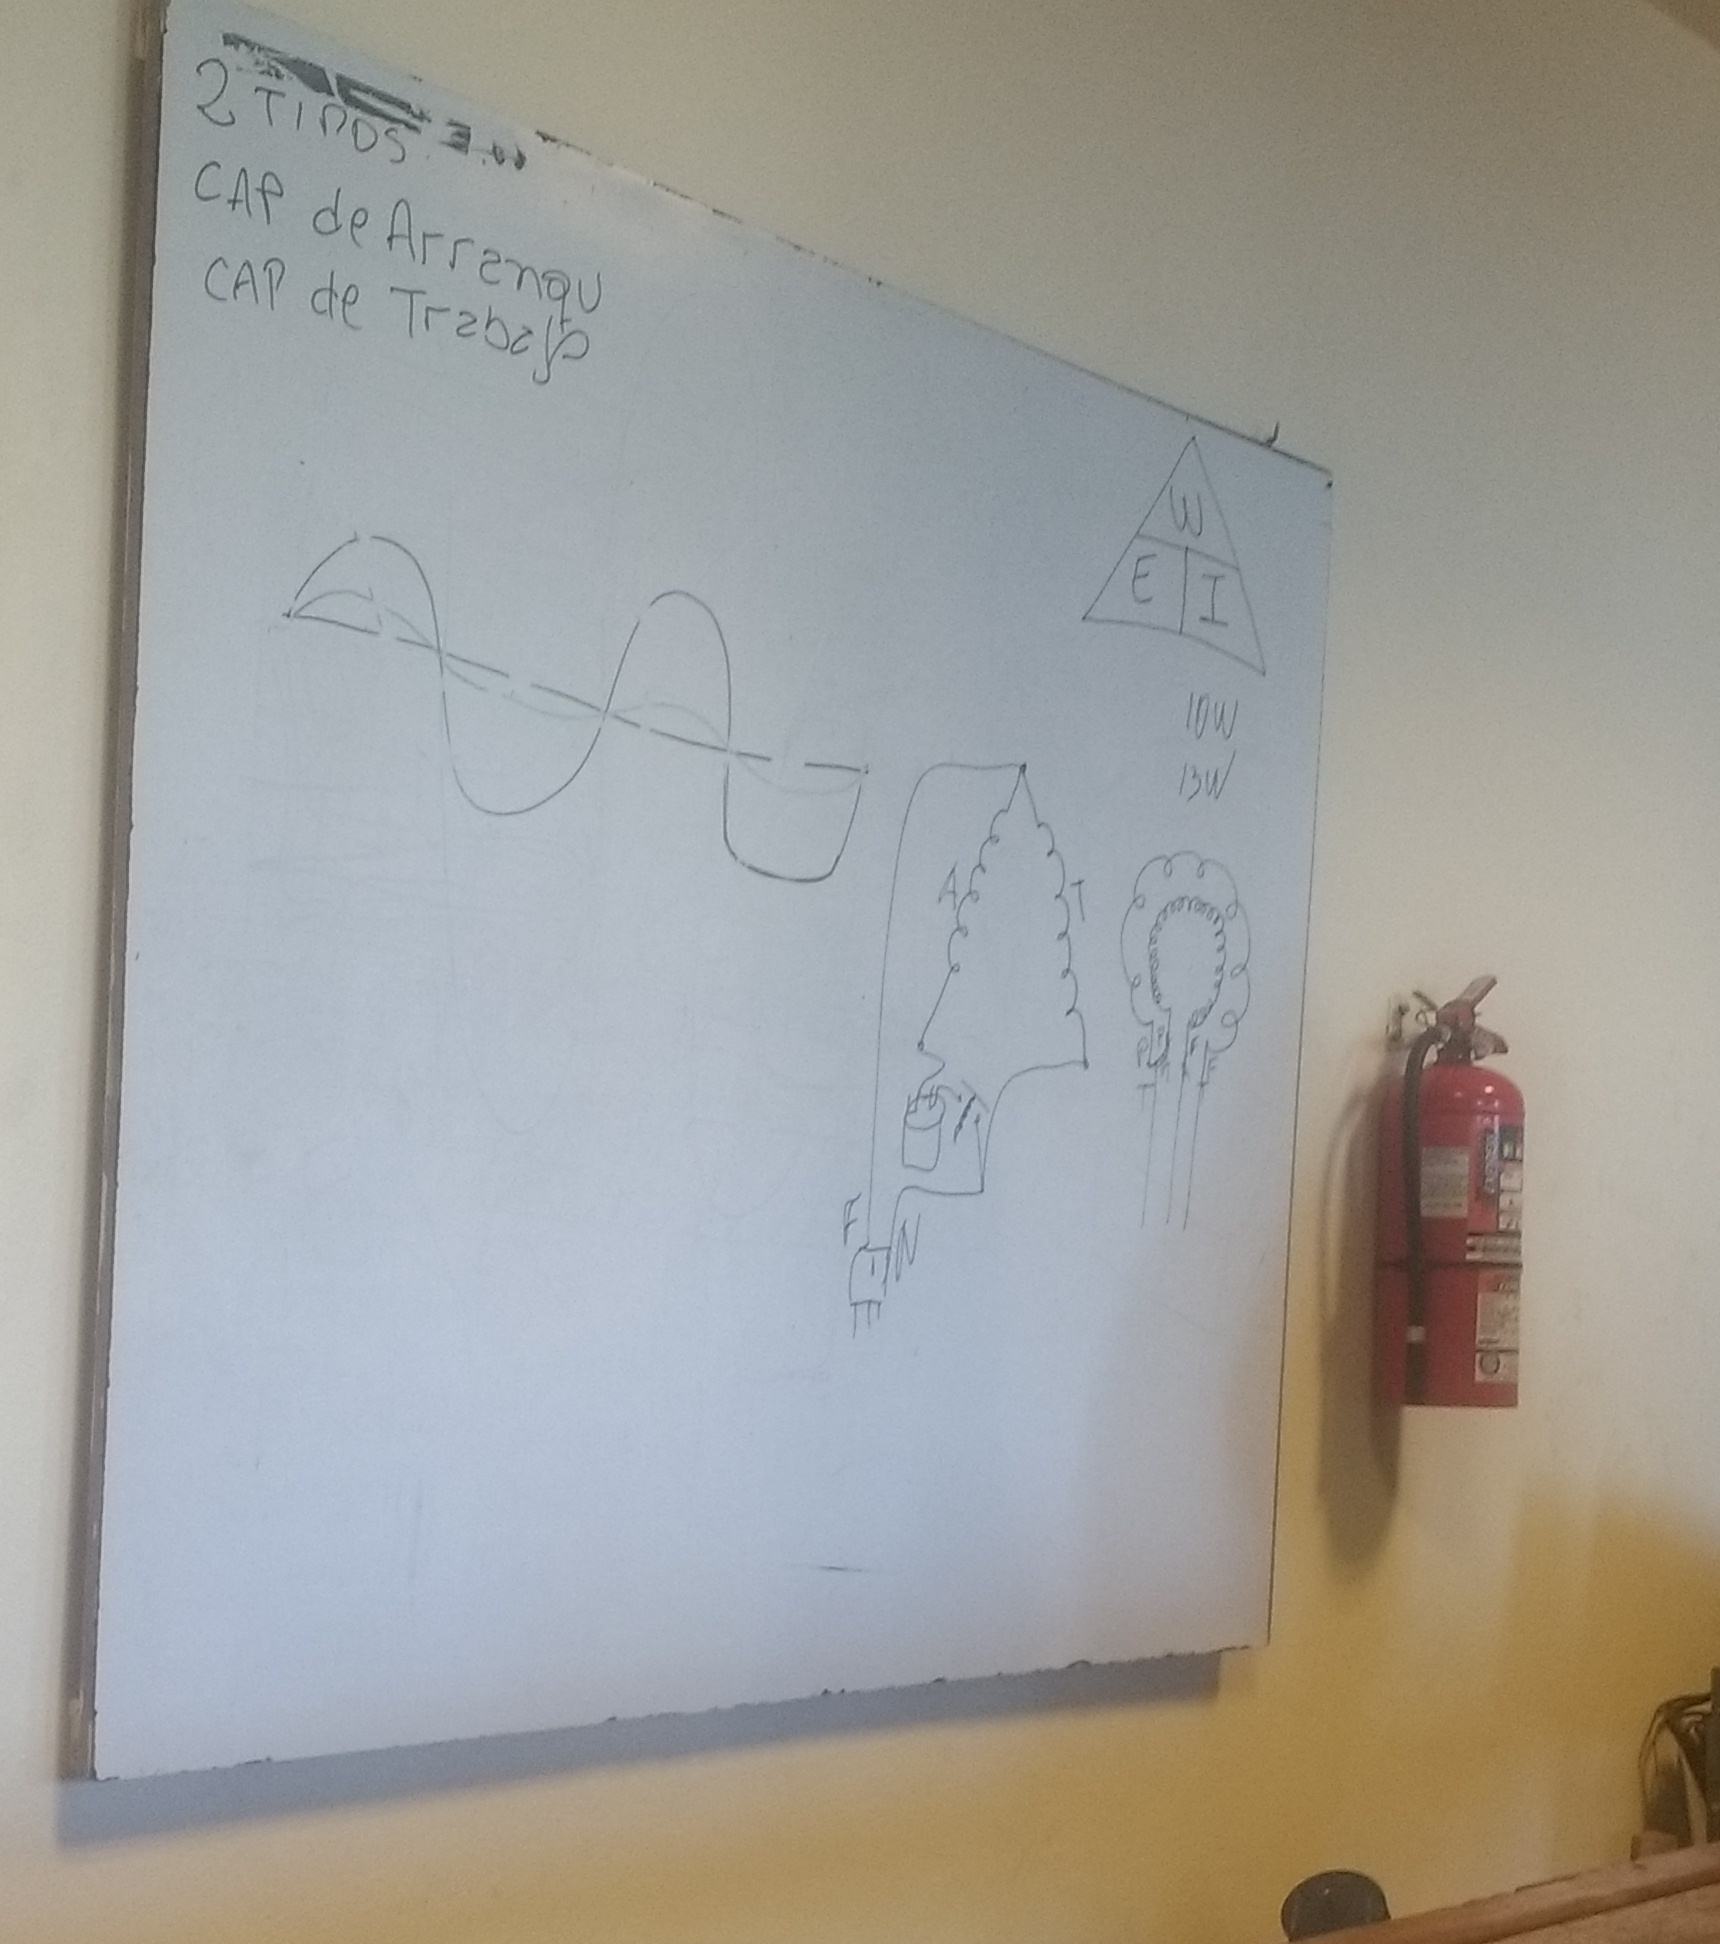 2 TIPOS
CAP de Arranqu
CAP de Trabajo
W
E I
10W
13W
A T
F N